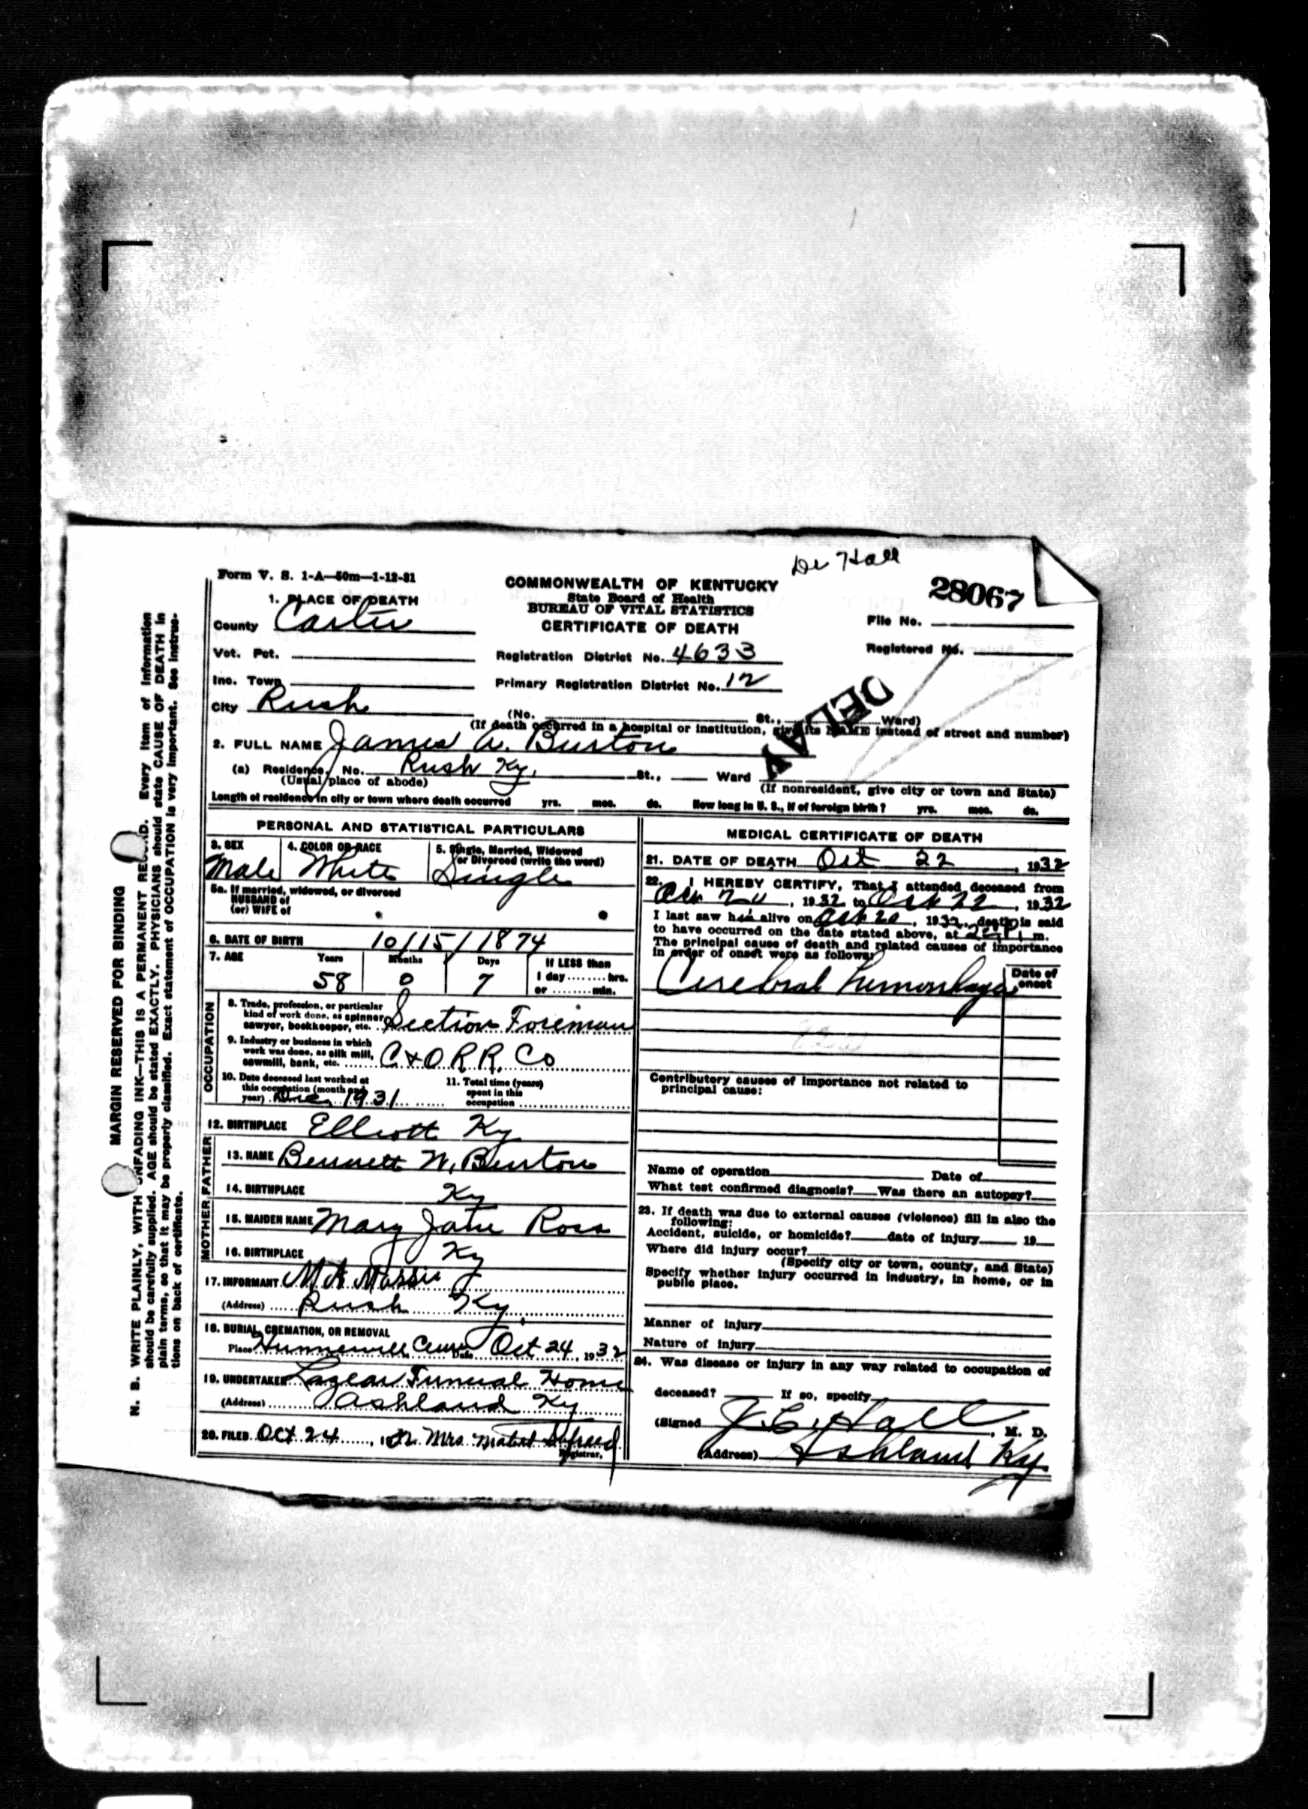 Dr Hall
Form V. S. 1-A—50m—1-12-31
COMMONWEALTH OF KENTUCKY
State Board of Health
BUREAU OF VITAL STATISTICS
CERTIFICATE OF DEATH
28067
File No.
Registered No.
1. PLACE OF DEATH
County Carter
Vot. Pct.
Registration District No. 4633
Inc. Town
Primary Registration District No. 12
City Rush
(No. St., Ward)
(If death occurred in a hospital or institution, give its NAME instead of street and number)
DELAY
2. FULL NAME James A. Burton
(a) Residence, No. Rush Ky. St., Ward
(Usual place of abode)
(If nonresident, give city or town and State)
Length of residence in city or town where death occurred yrs. mos. ds. How long in U. S., if of foreign birth? yrs. mos. ds.
PERSONAL AND STATISTICAL PARTICULARS
3. SEX
Male
4. COLOR OR RACE
White
5. Single, Married, Widowed
or Divorced (write the word)
Single
5a. If married, widowed, or divorced
HUSBAND of
(or) WIFE of
6. DATE OF BIRTH 10/15/1874
7. AGE Years Months Days If LESS than
58 0 7 1 day hrs.
or min.
OCCUPATION
8. Trade, profession, or particular
kind of work done, as spinner,
sawyer, bookkeeper, etc. Section Foreman
9. Industry or business in which
work was done, as silk mill,
sawmill, bank, etc. C & O R. R. Co
10. Date deceased last worked at
this occupation (month and
year) Dec 1931
11. Total time (years)
spent in this
occupation
12. BIRTHPLACE Elliott Ky
FATHER
13. NAME Bennett W. Burton
14. BIRTHPLACE Ky
MOTHER
15. MAIDEN NAME Mary Jane Ross
16. BIRTHPLACE Ky
17. INFORMANT M A Massie
(Address) Rush Ky.
18. BURIAL, CREMATION, OR REMOVAL
Place Hunnewell Cem Date Oct 24, 1932
19. UNDERTAKER Lazear Funeral Home
(Address) Ashland Ky
20. FILED Oct 24, Mrs. Mabel
Registrar.
MEDICAL CERTIFICATE OF DEATH
21. DATE OF DEATH Oct 22, 1932
22. I HEREBY CERTIFY, That I attended deceased from
1932 to Oct 22, 1932
I last saw him alive on Oct 20, 1932, death is said
to have occurred on the date stated above, at m.
The principal cause of death and related causes of importance
in order of onset were as follows:
Date of
onset
Cerebral hemorrhage
Contributory causes of importance not related to
principal cause:
Name of operation Date of
What test confirmed diagnosis? Was there an autopsy?
23. If death was due to external causes (violence) fill in also the
following:
Accident, suicide, or homicide? date of injury 19
Where did injury occur?
(Specify city or town, county, and State)
Specify whether injury occurred in industry, in home, or in
public place.
Manner of injury
Nature of injury
24. Was disease or injury in any way related to occupation of
deceased? If so, specify
(Signed J. C. Hall, M. D.
(Address) Ashland Ky
MARGIN RESERVED FOR BINDING
N. B. WRITE PLAINLY, WITH UNFADING INK—THIS IS A PERMANENT RECORD. Every item of information
should be carefully supplied. AGE should be stated EXACTLY. PHYSICIANS should state CAUSE OF DEATH in
plain terms, so that it may be properly classified. Exact statement of OCCUPATION is very important. See instruc-
tions on back of certificate.